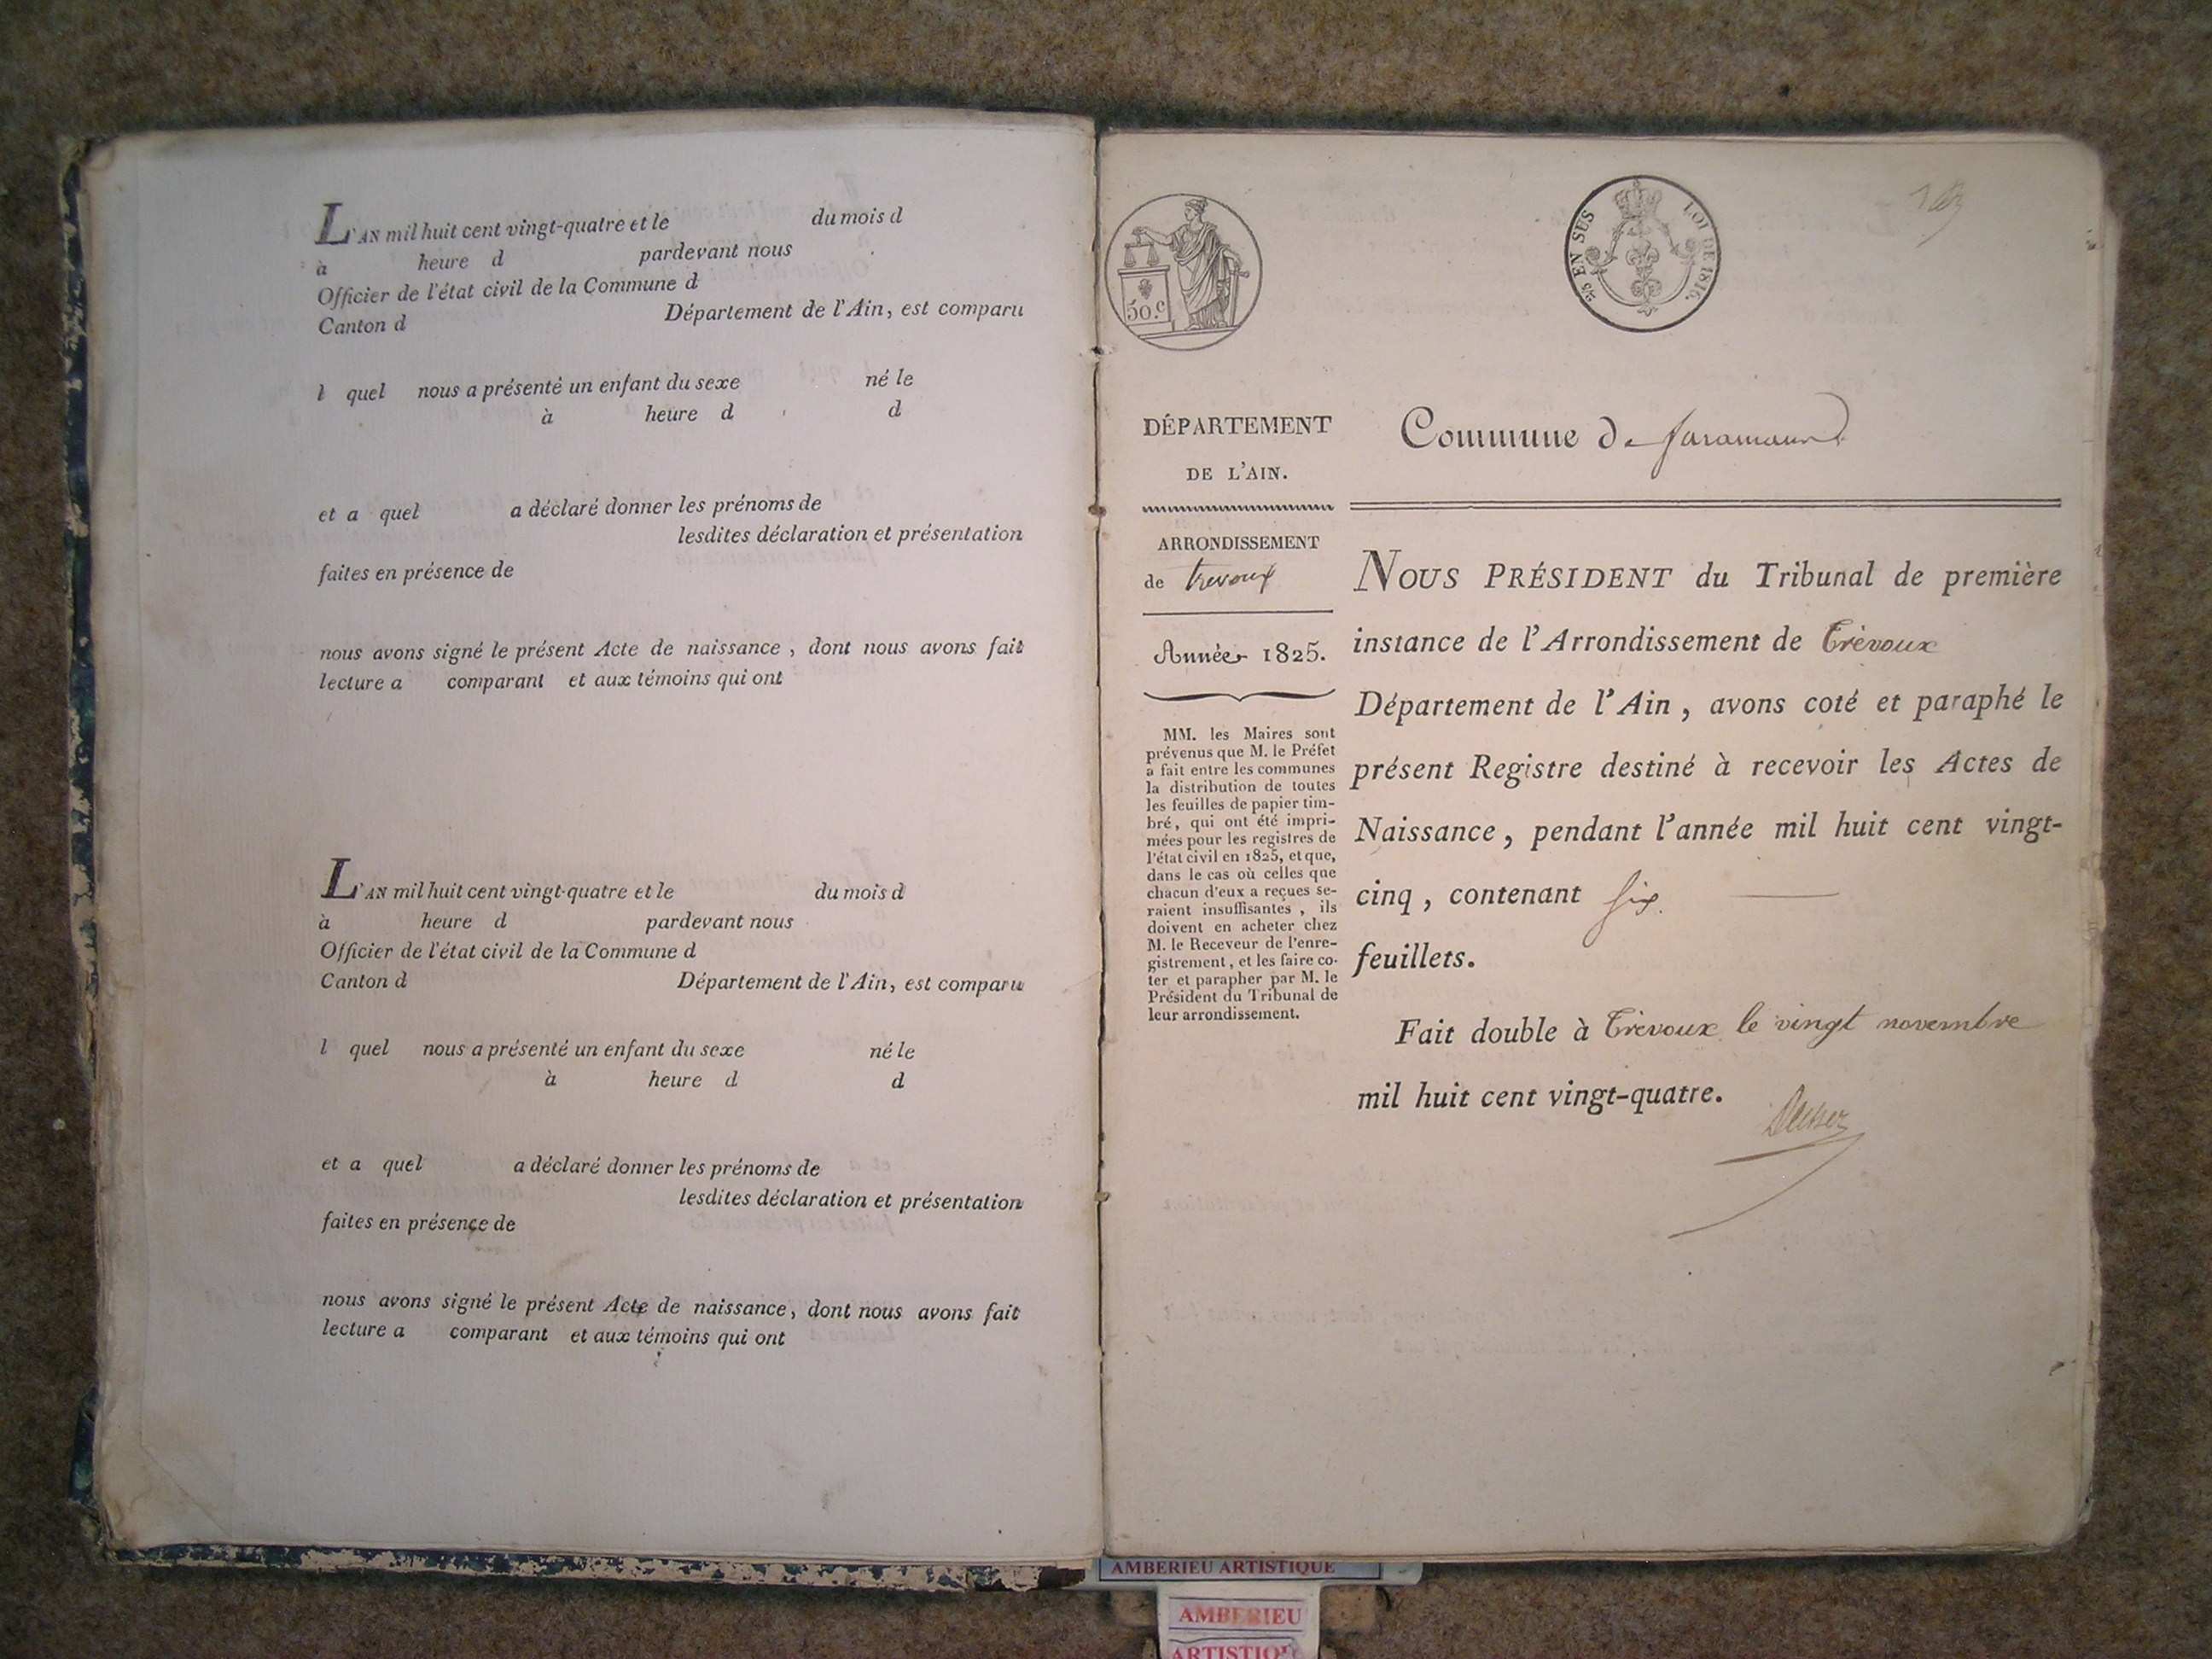 L'AN mil huit cent vingt-quatre et le du mois d
à heure d pardevant nous
Officier de l'état civil de la Commune d
Canton d Département de l'Ain, est comparu
l quel nous a présenté un enfant du sexe né le
à heure d d
et a quel a déclaré donner les prénoms de
lesdites déclaration et présentation
faites en présence de
nous avons signé le présent Acte de naissance, dont nous avons fait
lecture a comparant et aux témoins qui ont
L'AN mil huit cent vingt-quatre et le du mois d
à heure d pardevant nous
Officier de l'état civil de la Commune d
Canton d Département de l'Ain, est comparu
l quel nous a présenté un enfant du sexe né le
à heure d d
et a quel a déclaré donner les prénoms de
lesdites déclaration et présentation
faites en présence de
nous avons signé le présent Acte de naissance, dont nous avons fait
lecture a comparant et aux témoins qui ont
50.c
EN SUS
LOI DE 1816.
DÉPARTEMENT
DE L'AIN.
ARRONDISSEMENT
de trevoux
Année 1825.
MM. les Maires sont
prévenus que M. le Préfet
a fait entre les communes
la distribution de toutes
les feuilles de papier tim-
bré, qui ont été impri-
mées pour les registres de
l'état civil en 1825, et que,
dans le cas où celles que
chacun d'eux a reçues se-
raient insuffisantes, ils
doivent en acheter chez
M. le Receveur de l'enre-
gistrement, et les faire co-
ter et parapher par M. le
Président du Tribunal de
leur arrondissement.
Commune de faramans
NOUS PRÉSIDENT du Tribunal de première
instance de l'Arrondissement de Trévoux
Département de l'Ain, avons coté et paraphé le
présent Registre destiné à recevoir les Actes de
Naissance, pendant l'année mil huit cent vingt-
cinq, contenant six
feuillets.
Fait double à Trévoux le vingt novembre
mil huit cent vingt-quatre.
AMBERIEU ARTISTIQUE
AMBERIEU
ARTISTIQUE